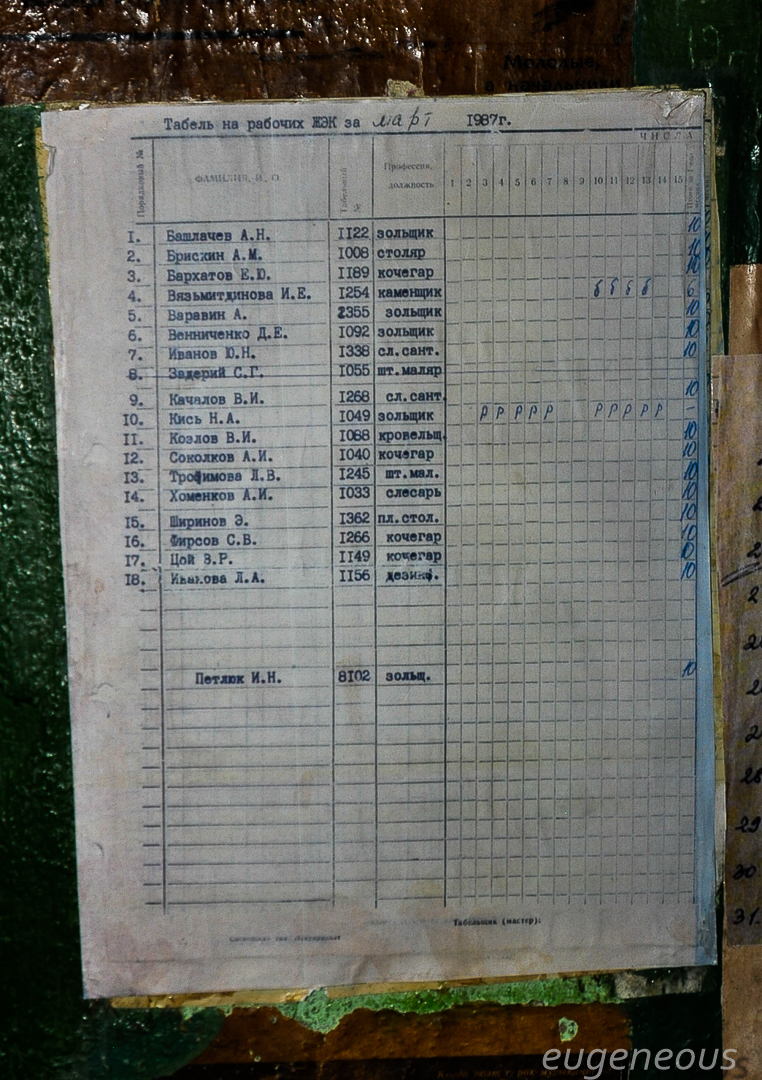 Молодые,
в начальники
Табель на рабочих ЖЭК за март 1987г.
ЧИСЛА
Порядковый № ФАМИЛИЯ, И., О. Табельный № Профессия, должность 1 2 3 4 5 6 7 8 9 10 11 12 13 14 15
1. Башлачев А.Н. 1122 зольщик 10
2. Брискин А.М. 1008 столяр 10
3. Бархатов Е.Ю. 1189 кочегар 10
4. Вязьмитдинова И.Е. 1254 каменщик б б б б 6
5. Варавин А. 2355 зольщик 10
6. Венниченко Д.Е. 1092 зольщик 10
7. Иванов Ю.Н. 1338 сл.сант. 10
8. Задерий С.Г. 1055 шт.маляр
9. Качалов В.И. 1268 сл.сант. 10
10. Кись Н.А. 1049 зольщик р р р р р р р р р р -
11. Козлов В.И. 1088 кровельщ. 10
12. Соколков А.И. 1040 кочегар 10
13. Трофимова Л.В. 1245 шт.мал. 10
14. Хоменков А.И. 1033 слесарь 10
15. Ширинов Э. 1362 пл.стол. 10
16. Фирсов С.В. 1266 кочегар 10
17. Цой В.Р. 1149 кочегар 10
18. Иванова Л.А. 1156 дезинф. 10
Петлюк И.Н. 8102 зольщ. 10
Табельщик (мастер):
28
29
30.
31.
eugeneous